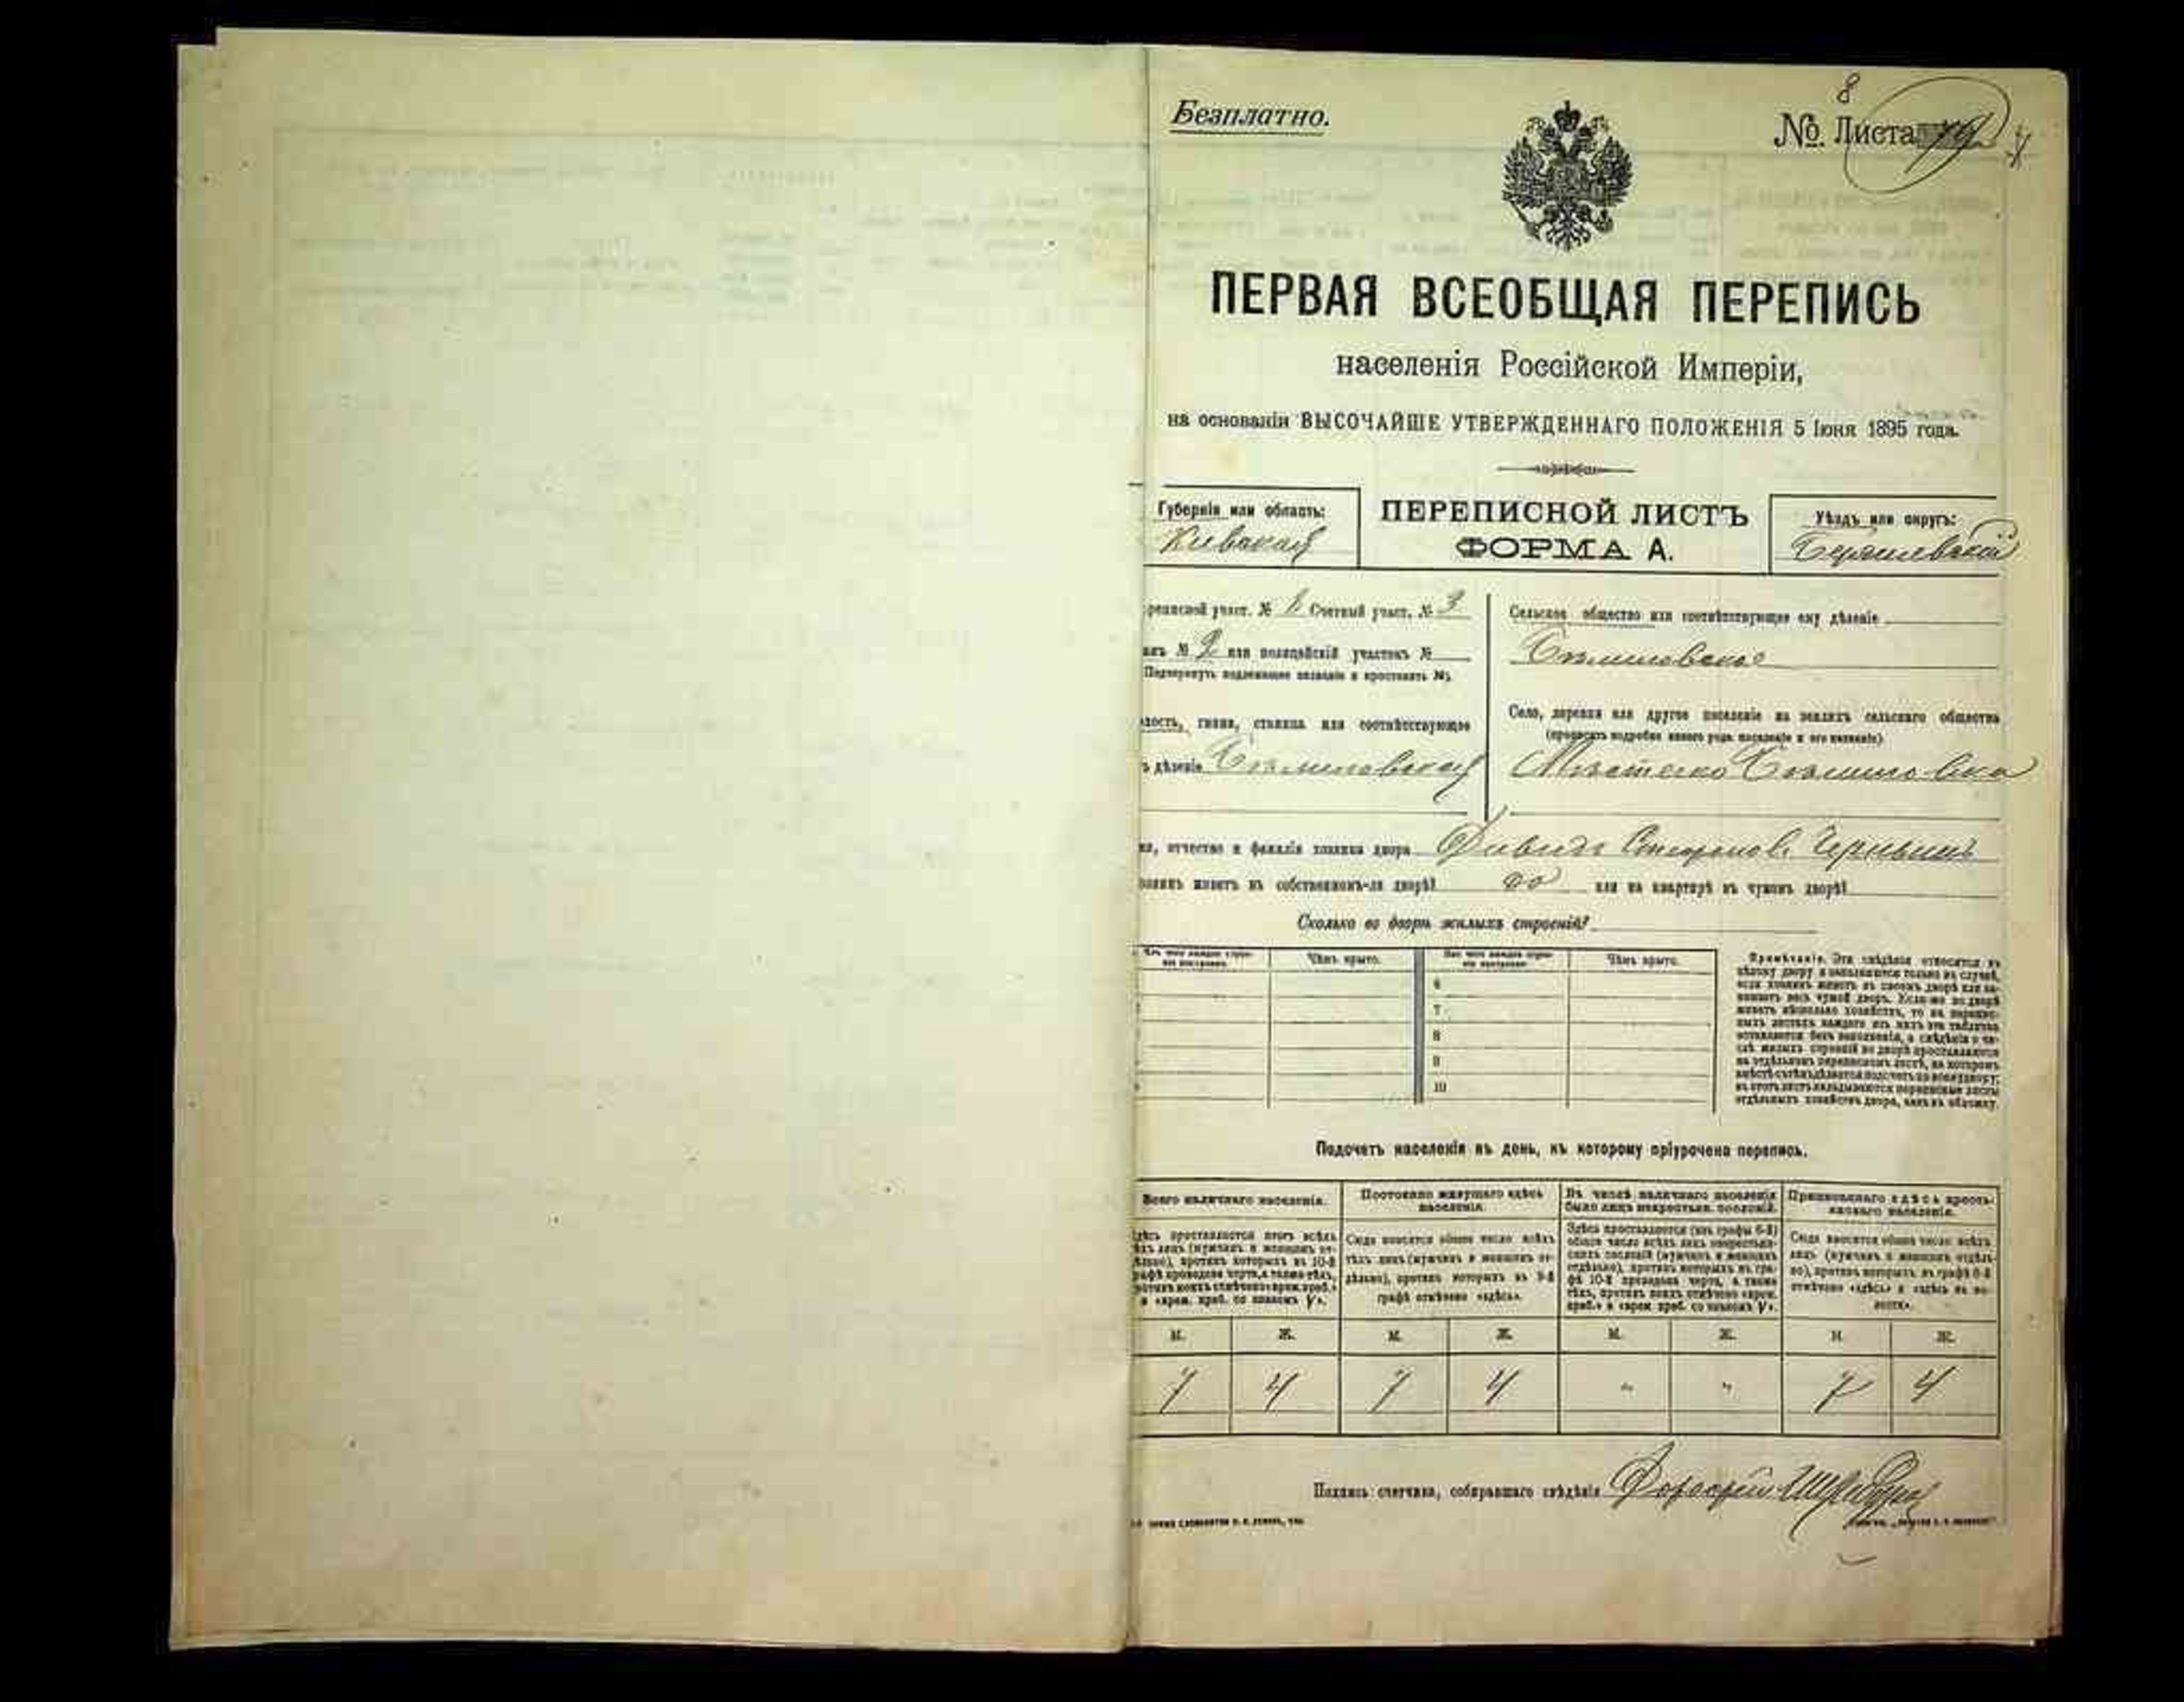 Безплатно.
8
№ Листа
ПЕРВАЯ ВСЕОБЩАЯ ПЕРЕПИСЬ
населенія Россійской Имперіи,
на основаніи ВЫСОЧАЙШЕ УТВЕРЖДЕННАГО ПОЛОЖЕНІЯ 5 Іюня 1895 года.
Губернія или область:
Кіевская
ПЕРЕПИСНОЙ ЛИСТЪ
ФОРМА А.
Уѣздъ или округъ:
реписной участ. № Счетный участ. № 3
анъ № 2 или полицейскій участокъ №
Подчеркнуть подлежащее названіе и проставить №.
лость, гмина, станица или соотвѣтствующее
ъ дѣленіе
Сельское общество или соотвѣтствующее ему дѣленіе
Село, деревня или другое поселеніе на земляхъ сельскаго общества
(прописать подробно какого рода поселеніе и его названіе)
Мѣстечко
мя, отчество и фамилія хозяина двора Давидъ
зяинъ живетъ въ собственномъ-ли дворѣ? да или на квартирѣ въ чужомъ дворѣ?
Сколько во дворѣ жилыхъ строеній?
Изъ чего каждое строеніе построено.
Чѣмъ крыто.
Изъ чего каждое строеніе построено.
Чѣмъ крыто.
6
7
8
9
10
Примѣчаніе. Эти свѣдѣнія относятся къ
цѣлому двору и заполняются только въ случаѣ,
если хозяинъ живетъ въ своемъ дворѣ или за-
нимаетъ весь чужой дворъ. Если-же во дворѣ
живетъ нѣсколько хозяйствъ, то на перепис-
ныхъ листахъ каждаго изъ нихъ эта табличка
оставляется безъ заполненія, а свѣдѣнія о чи-
слѣ жилыхъ строеній во дворѣ проставляются
на отдѣльномъ переписномъ листѣ, на которомъ
вмѣстѣ съ тѣмъ дѣлается подсчетъ по всему двору;
въ этотъ листъ вкладываются переписные листы
отдѣльныхъ хозяйствъ двора, какъ въ обложку.
Подсчетъ населенія въ день, къ которому пріурочена перепись.
Всего наличнаго населенія.
Здѣсь проставляется итогъ всѣхъ
тѣхъ лицъ (мужчинъ и женщинъ от-
дѣльно), противъ которыхъ въ 10-й
графѣ проведена черта, а также тѣхъ,
противъ коихъ отмѣчено «врем. преб.»
и «врем. преб. со знакомъ V».
Постоянно живущаго здѣсь
населенія.
Сюда вносится общее число всѣхъ
тѣхъ лицъ (мужчинъ и женщинъ от-
дѣльно), противъ которыхъ въ 9-й
графѣ отмѣчено «здѣсь».
Въ числѣ наличнаго населенія
было лицъ некрестьян. сословій.
Здѣсь проставляется (изъ графы 6-й)
общее число всѣхъ лицъ некрестьян-
скихъ сословій (мужчинъ и женщинъ
отдѣльно), противъ которыхъ въ гра-
фѣ 10-й проведена черта, а также
тѣхъ, противъ коихъ отмѣчено «врем.
преб.» и «врем. преб. со знакомъ V».
Приписаннаго здѣсь кресть-
янскаго населенія.
Сюда вносится общее число всѣхъ
лицъ (мужчинъ и женщинъ отдѣль-
но), противъ которыхъ въ графѣ 8-й
отмѣчено «здѣсь» и «здѣсь въ во-
лости».
М. Ж. М. Ж. М. Ж. М. Ж.
7 4 7 4 " " 7 4
Подпись счетчика, собиравшаго свѣдѣнія